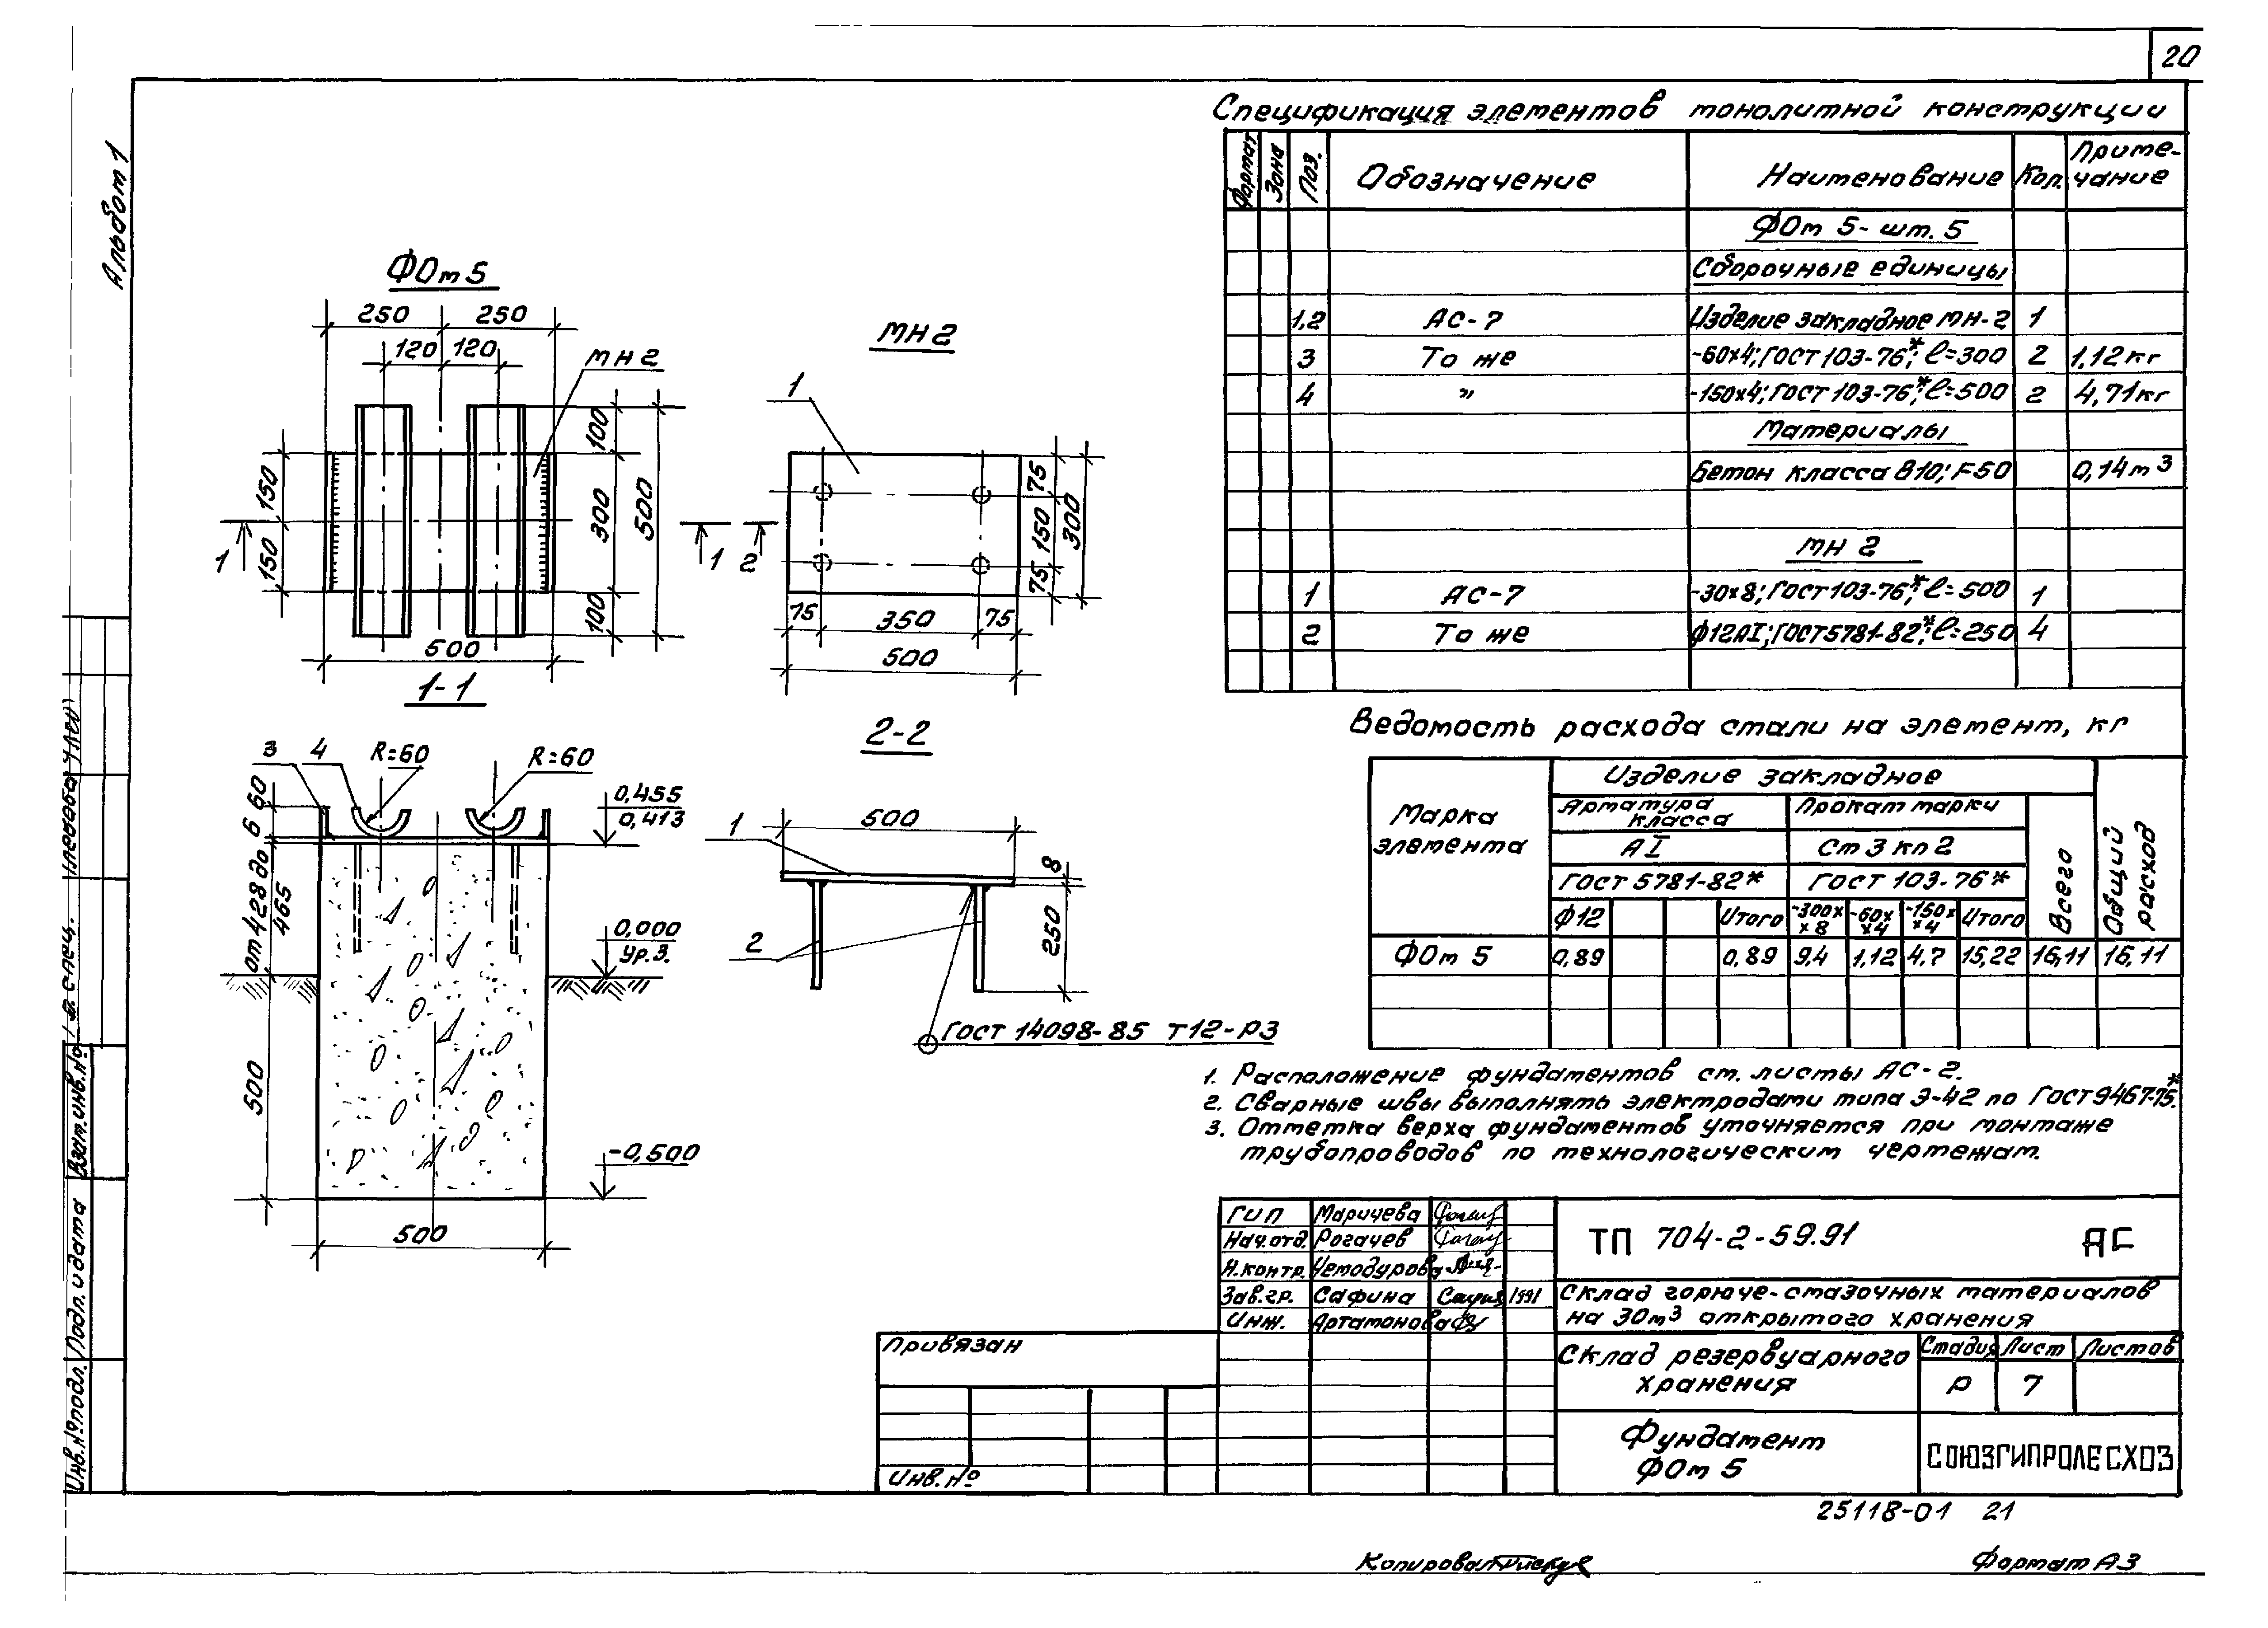 20
Альбом 1
ФОм 5
250 250
120 120
МН 2
100
300
500
100
150
150
1 1
500
МН 2
1
2
75
150
75
300
75 350 75
500
1-1
3 4 R=60 R=60
60
6
от 428 до
465
500
0,455
0,413
0,000
ур.з.
-0,500
500
2-2
500
1
8
2
250
ГОСТ 14098-85 Т12-Р3
Спецификация элементов монолитной конструкции
Формат Зона Поз. Обозначение Наименование Кол. Приме-
чание
ФОм 5- шт. 5
Сборочные единицы
1,2 АС-7 Изделие закладное МН-2 1
3 То же -60х4; ГОСТ 103-76*; ℓ=300 2 1,12 кг
4 " -150х4; ГОСТ 103-76*; ℓ=500 2 4,71 кг
Материалы
Бетон класса В10; F50 0,14 м³
МН 2
1 АС-7 -30х8; ГОСТ 103-76*; ℓ=500 1
2 То же ф12АI; ГОСТ 5781-82*; ℓ=250 4
Ведомость расхода стали на элемент, кг
Марка
элемента
Изделие закладное
Арматура
класса
Прокат марки
АI Ст 3 кп 2
ГОСТ 5781-82* ГОСТ 103-76*
Ф12 Итого -300х
х8 -60х
х4 -150х
х4 Итого
Всего
Общий
расход
ФОм 5 0,89 0,89 9,4 1,12 4,7 15,22 16,11 16,11
1. Расположение фундаментов см. листы АС-2.
2. Сварные швы выполнять электродами типа Э-42 по ГОСТ 9467-75*.
3. Отметка верха фундаментов уточняется при монтаже
трубопроводов по технологическим чертежам.
ГИП Маричева
Нач.отд. Рогачев
Н.контр. Чемодурова
Зав.гр. Сафина 1991
Инж. Артамонова
ТП 704-2-59.91 АС
Склад горюче-смазочных материалов
на 30м³ открытого хранения
Склад резервуарного
хранения
Стадия Лист Листов
Р 7
Фундамент
ФОм 5
СОЮЗГИПРОЛЕСХОЗ
Привязан
Инв.№
Гл. спец.
Взам.инв.№
Подп. и дата
Инв.№ подл.
25118-01 21
Копировал
Формат А3